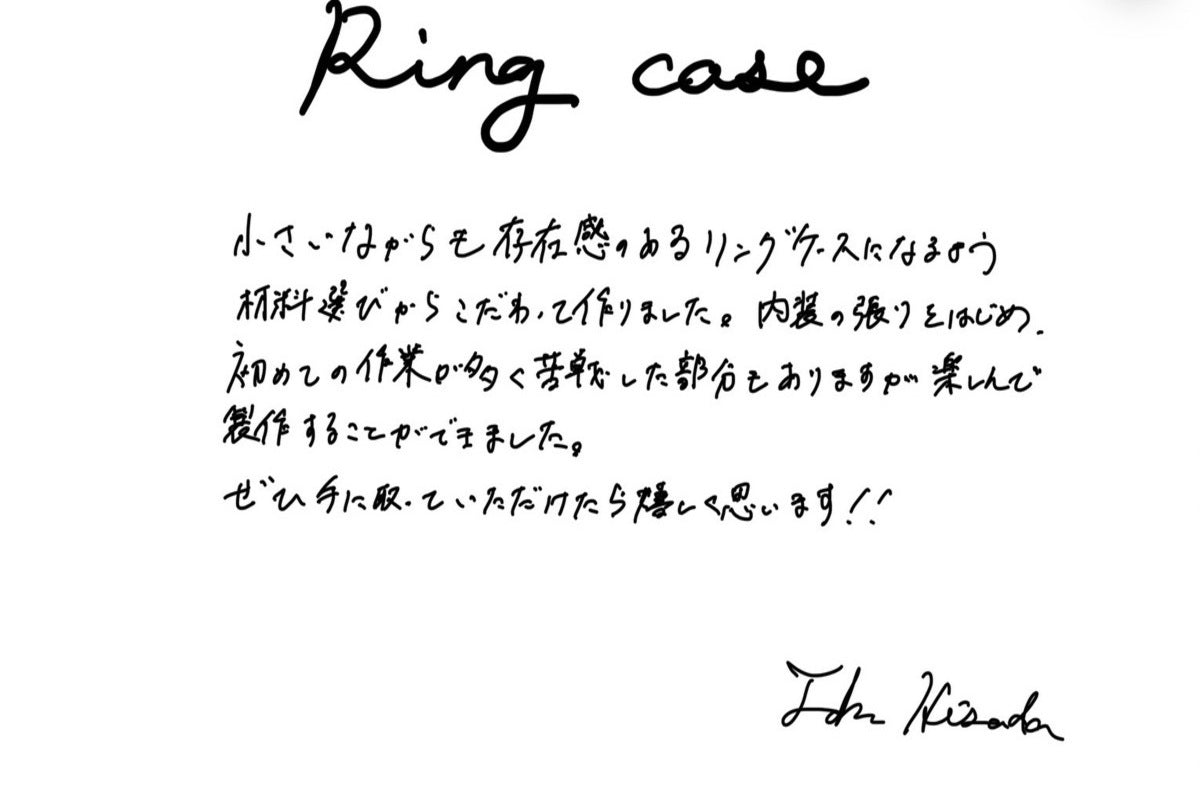 Ring case
小さいながらも存在感のあるリングケースになるよう
材料選びからこだわって作りました。内装の張りをはじめ、
初めての作業が多く苦戦した部分もありますが楽しんで
製作することができました。
ぜひ手に取っていただけたら嬉しく思います!!
Hisada